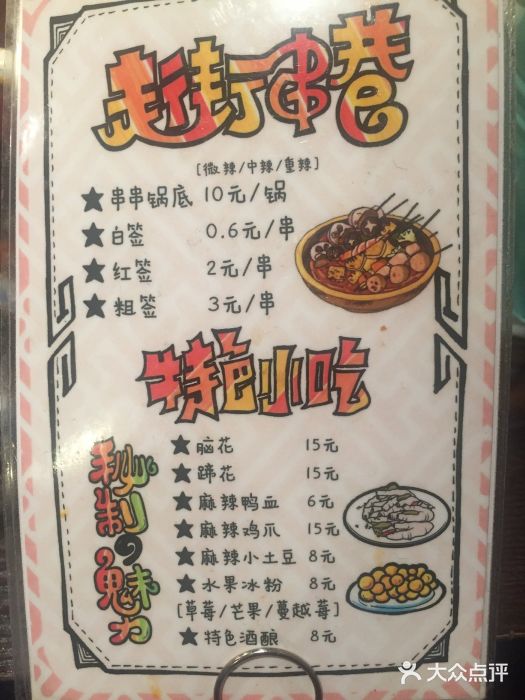 赶场串巷
[微辣/中辣/重辣]
★ 串串锅底 10元/锅
★ 白签 0.6元/串
★ 红签 2元/串
★ 粗签 3元/串
特色小吃
秘制の魅力
★ 脑花 15元
★ 蹄花 15元
★ 麻辣鸭血 6元
★ 麻辣鸡爪 15元
★ 麻辣小土豆 8元
★ 水果冰粉 8元
[草莓/芒果/蔓越莓]
★ 特色酒酿 8元
大众点评